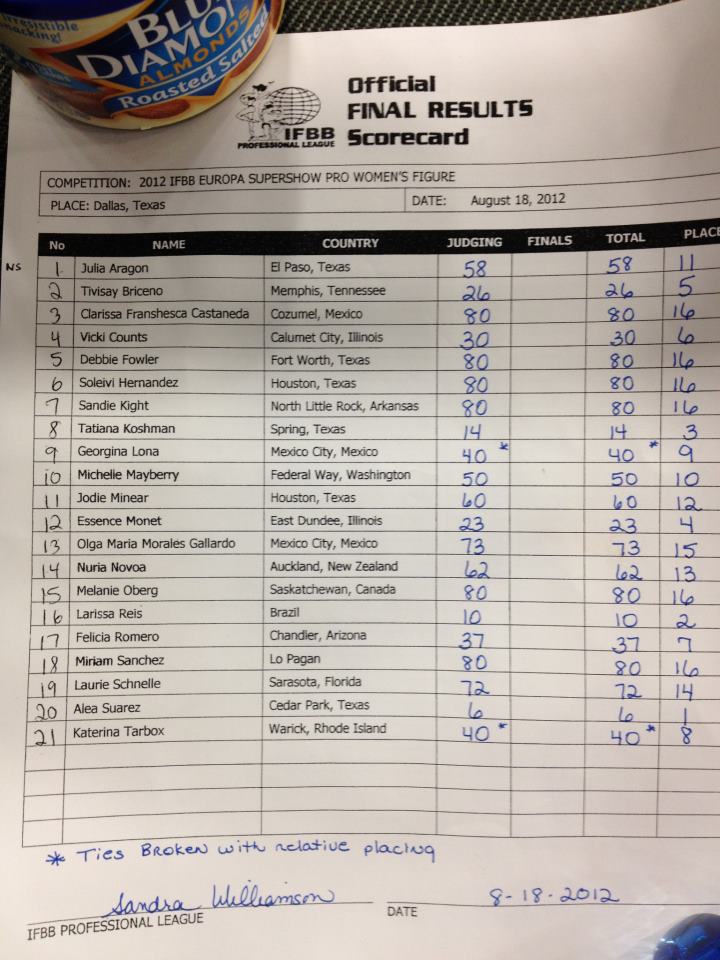 irresistible
snacking!
BLUE
DIAMOND
ALMONDS
Roasted Salted
IFBB
PROFESSIONAL LEAGUE
Official
FINAL RESULTS
Scorecard
COMPETITION: 2012 IFBB EUROPA SUPERSHOW PRO WOMEN'S FIGURE
PLACE: Dallas, Texas DATE: August 18, 2012
No NAME COUNTRY JUDGING FINALS TOTAL PLACE
NS 1 Julia Aragon El Paso, Texas 58 58 11
2 Tivisay Briceno Memphis, Tennessee 26 26 5
3 Clarissa Franshesca Castaneda Cozumel, Mexico 80 80 16
4 Vicki Counts Calumet City, Illinois 30 30 6
5 Debbie Fowler Fort Worth, Texas 80 80 16
6 Soleivi Hernandez Houston, Texas 80 80 16
7 Sandie Kight North Little Rock, Arkansas 80 80 16
8 Tatiana Koshman Spring, Texas 14 14 3
9 Georgina Lona Mexico City, Mexico 40 * 40 * 9
10 Michelle Mayberry Federal Way, Washington 50 50 10
11 Jodie Minear Houston, Texas 60 60 12
12 Essence Monet East Dundee, Illinois 23 23 4
13 Olga Maria Morales Gallardo Mexico City, Mexico 73 73 15
14 Nuria Novoa Auckland, New Zealand 62 62 13
15 Melanie Oberg Saskatchewan, Canada 80 80 16
16 Larissa Reis Brazil 10 10 2
17 Felicia Romero Chandler, Arizona 37 37 7
18 Miriam Sanchez Lo Pagan 80 80 16
19 Laurie Schnelle Sarasota, Florida 72 72 14
20 Alea Suarez Cedar Park, Texas 6 6 1
21 Katerina Tarbox Warick, Rhode Island 40 * 40 * 8
* Ties Broken with relative placing
Sandra Williamson 8-18-2012
IFBB PROFESSIONAL LEAGUE DATE